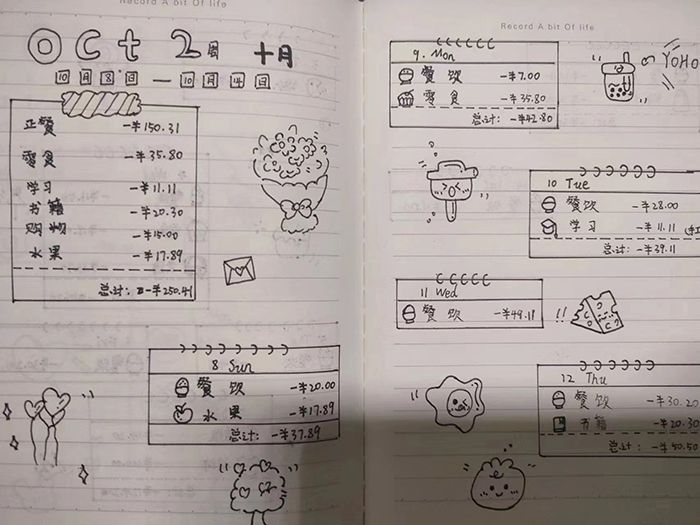 Record A bit Of life
Oct 2周 十月
10月8日—10月14日
正餐 -¥150.31
零食 -¥35.80
学习 -¥11.11
书籍 -¥20.30
购物 -¥15.00
水果 -¥17.89
总计: -¥250.41
8 Sun
餐饮 -¥20.00
水果 -¥17.89
总计: -¥37.89
Record A bit Of life
9. Mon
餐饮 -¥7.00
零食 -¥35.80
总计: -¥42.80
YOHO
10 Tue
餐饮 -¥28.00
学习 -¥11.11
总计: -¥39.11
11 Wed
餐饮 -¥49.11
!!
12 Thu
餐饮 -¥30.20
书籍 -¥20.30
总计: -¥50.50